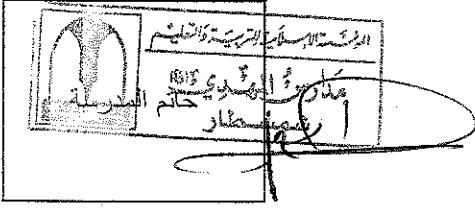 المؤسسة الإسلامية للتربية والتعليم
مدارس المهدي
خاتم المدرسة
شمسطار